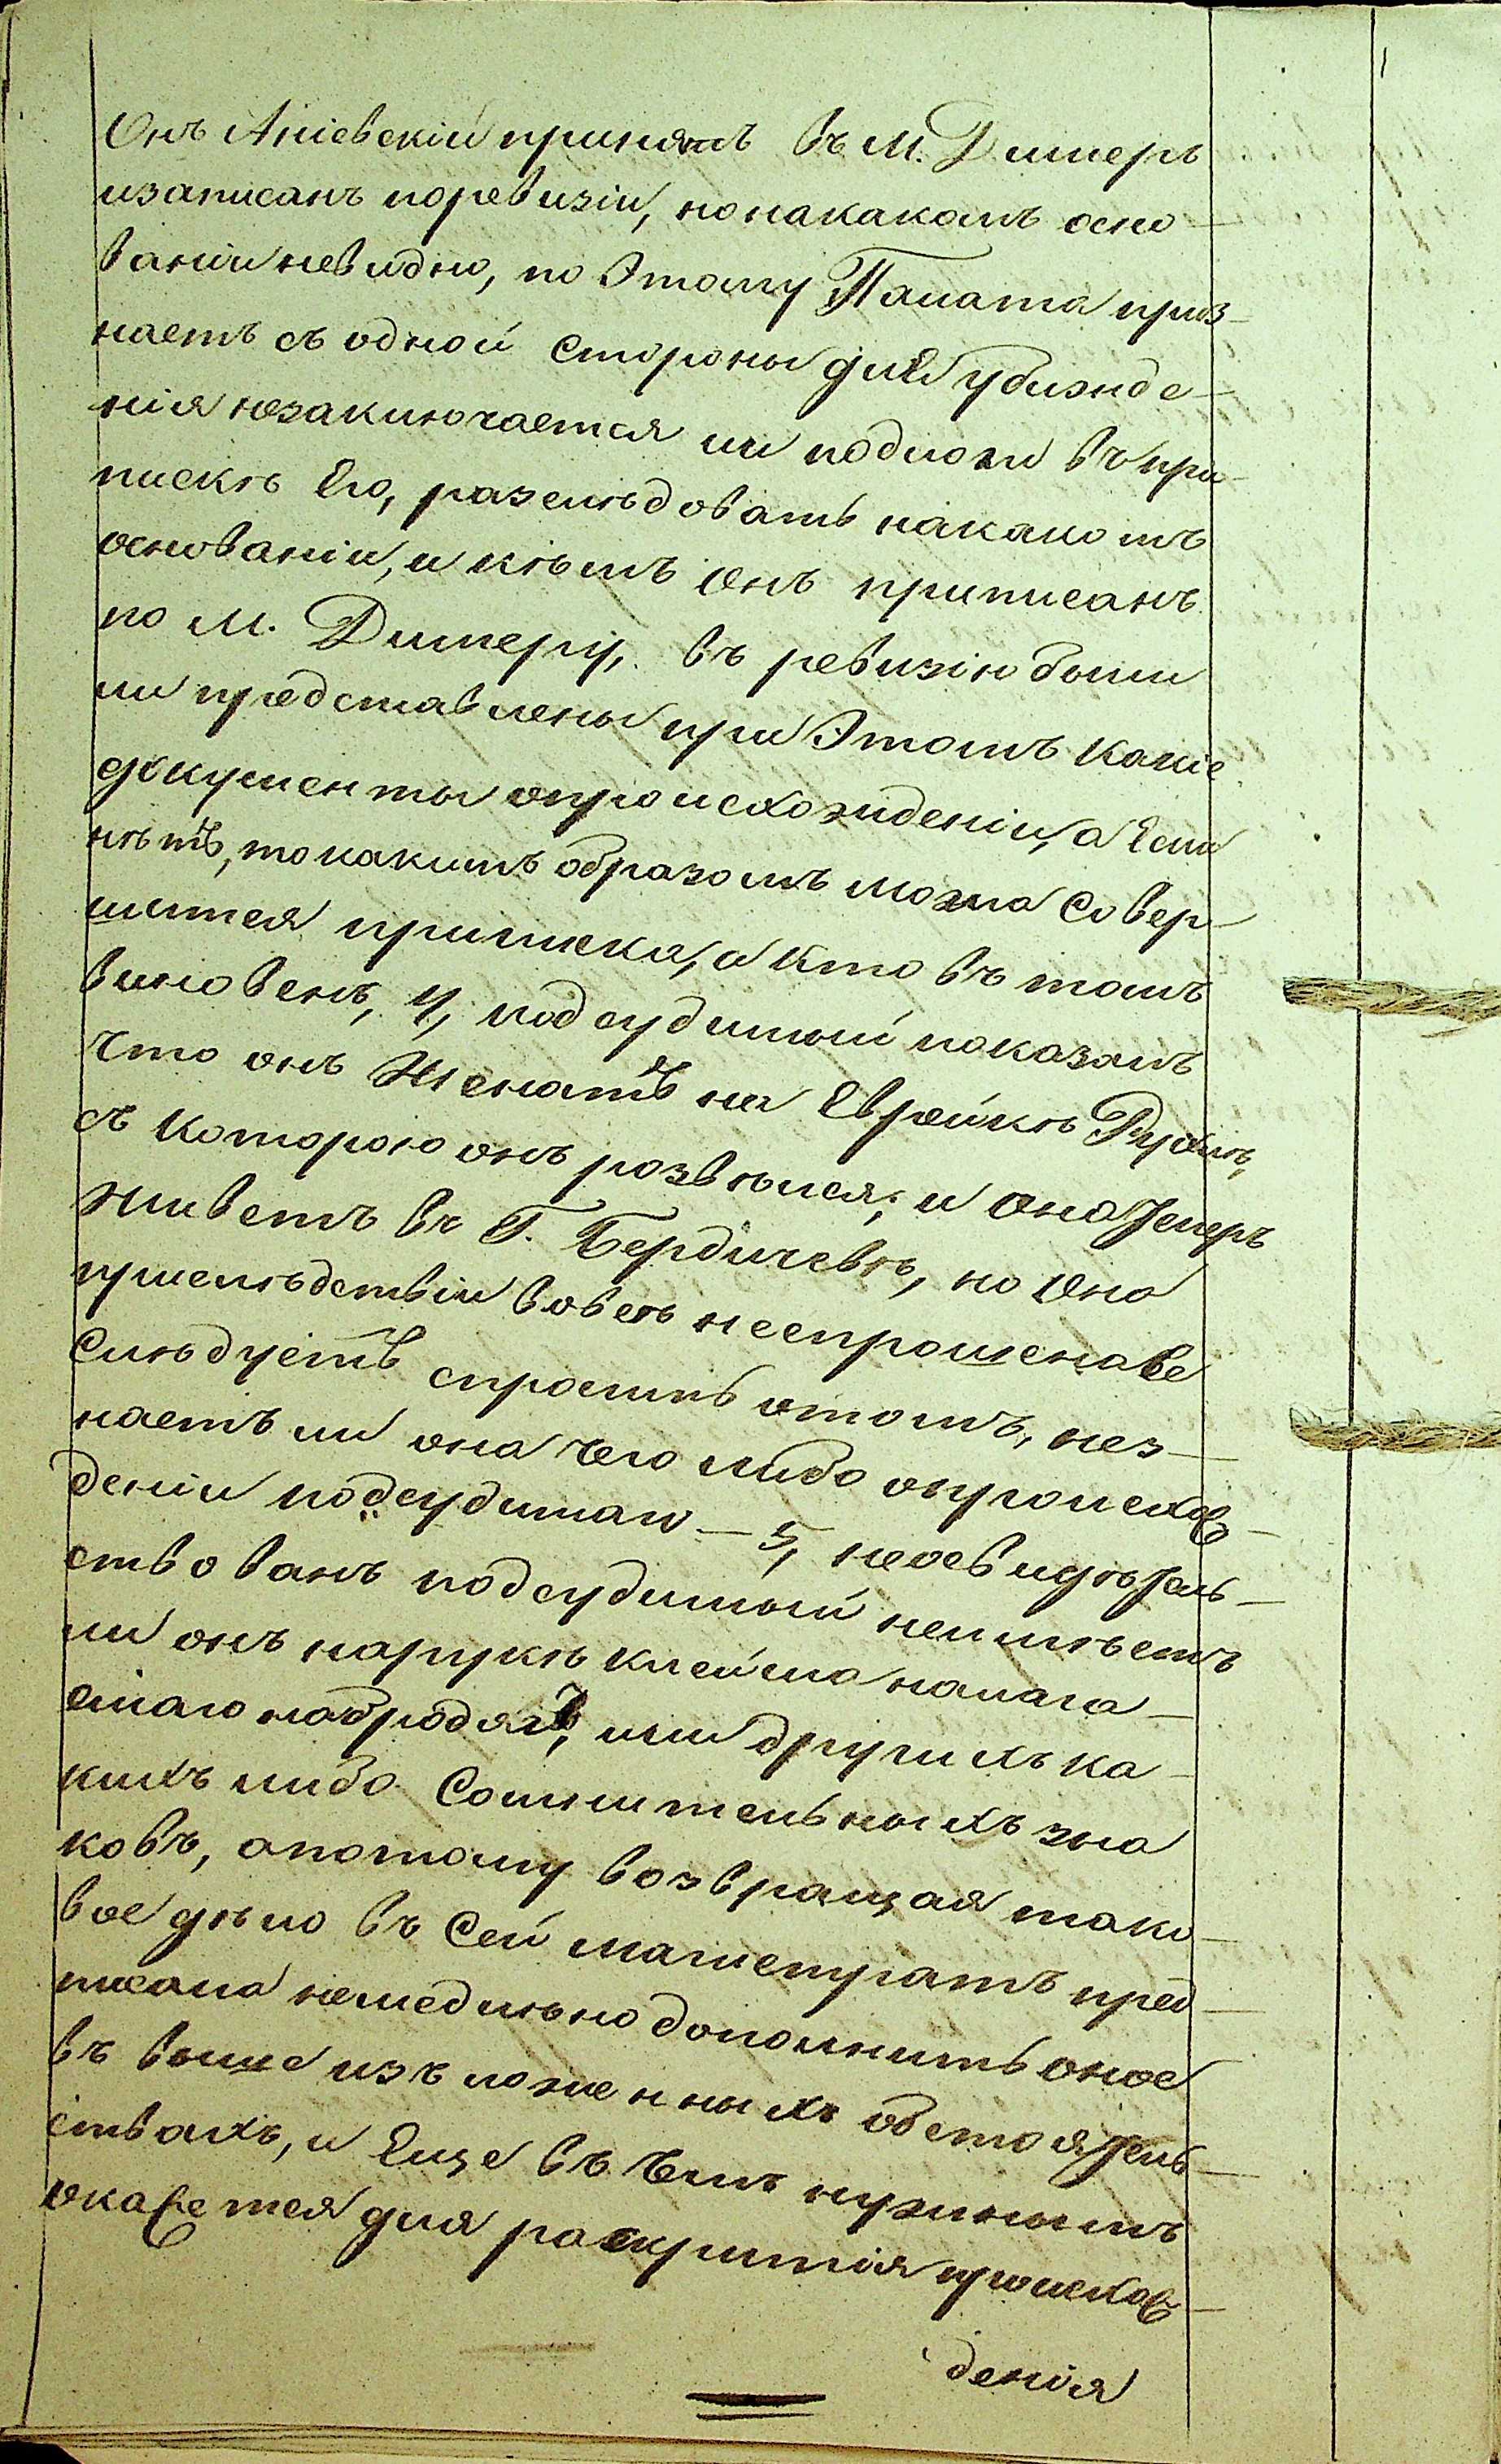 Онъ Аліевскій принятъ въ м. Димеръ
изаписанъ поревизіи, нонакакомъ осно-
ваніи невидно, по Этому Палата приз-
наетъ съ одной Стороны для убѣжде-
нія незаключается ли подлога въ при-
пискѣ Его, разслѣдовать накакомъ
основаніи, и кѣмъ Онъ приписанъ
по М. Димеру, въ ревизію были
ли представлены при Этомъ какіе
документы опроисхожденіи, а Если
нѣтъ, то какимъ образомъ могла Совер-
шится приписка, а Кто въ томъ
виновенъ, 4, подсудимый показалъ
Что онъ Женатъ на Еврейкѣ Рухлѣ,
съ Которою онъ розвѣлся, и Она теперъ
живетъ въ Г. Бердичевѣ, но Она
прислѣдствіи вовсе неспрошена
Слѣдуетъ спросить отомъ, нез-
наетъ ли она Чего либо опроисхож-
деніи подсудимаго — 5, неосвидѣтель-
ствованъ подсудимый неимѣетъ
ли онъ нарукѣ клейма налага-
емаго набродягъ, или другихъ ка-
кихъ либо Сомнительныхъ зна
ковъ, апотому возвращая тако-
вое дѣло въ Сей магистратъ пред-
писала немедлѣнно дополнить оное
въ выше изъложенныхъ обстоятель-
ствахъ, и Еще въ Чемъ нужнымъ
окажется для раскрытія происхож-
денія